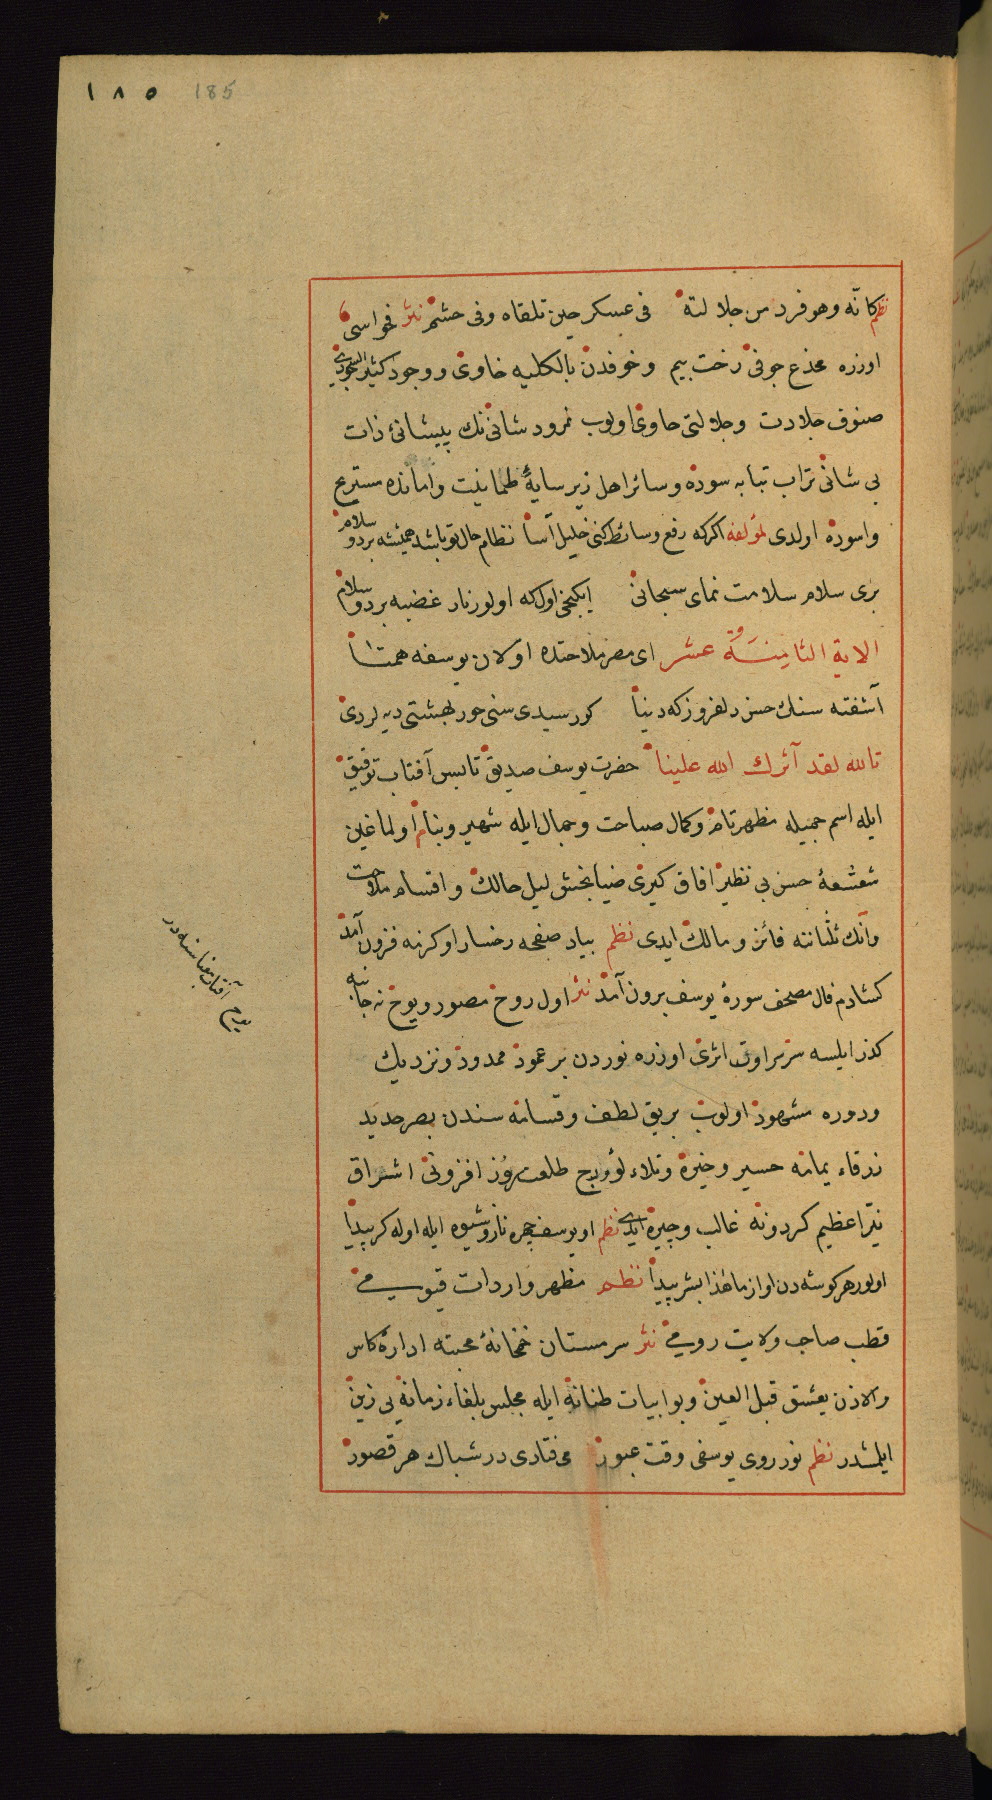 ١٨٥ 185
نظم كأنّه وهو فرد من جلالته في عسكر حين تلقاه وفي حشم نثر فحواسى
اوزره مخدع جوفى رخت بيم وخوفدن بالكليه خاوى ووجود كثير الجودى
صنوف جلادت وجلالتى حاوى اولوب نمرود شانى نك پيشانئ ذات
بى شانى تراب تبابه سوده وسائر اهل زير سايهٔ طمانينت وامانده مستريح
واسوده اولدى لمؤلفه اكركه رفع وسائط كنى خليل آسا نظام حال تو باشد هميشه بردو سلام
برى سلام سلامت نماى سبحانى ايكنجى اول كه اولور نار غضبه بردو سلام
الاية الثامنة عشر اى مصر ملاحتده اولان يوسفه همتا
آشفته سنك حسن دلفروزكه دنيا كورسيدى سنى حور بهشتى ديه لردى
تالله لقد آثرك الله علينا حضرت يوسف صديق تابس آفتاب توفيق
ايله اسم جميله مظهر تام وكمال صباحت وجمال ايله شهير وبنام اولماغين
شعشعهٔ حسن بى نظير افاق كيرى ضيابخش ليل حالك واقسام ملاحت
وآنك ثلثاننه فائز ومالك ايدى نظم بياد صفحه رخسار او كرنه فزون آمد
كشادم فال مصحف سورهٔ يوسف برون آمد نثر اول روح مصور ويوح نه جانبه
كذر ايلسه سرتسر اوق اثرى اوزره نوردن بر عمود ممدود ونزديك
ودوره مشهود اولوب بريق لطف وقسامه سندن بصر حديد
زرقاء يمامه حسير وخيره وتلاء لؤ يوح طلعت روز افزونى اشراق
نيّر اعظيم كردونه غالب وچيره ايدى نظم او يوسف چهره ناز وشيوه ايله اوله كر پيدا
اولور هر كوشه دن اواز ما هذا بشر پيدا نظم مظهر واردات قيومى
قطب صاحب ولايت رومى نثر سرمستان خمخانهٔ محبته ادارهٔ كاس
والاذن يعشق قبل العين وبو ابيات طنانه ايله مجلس بلغاء زمانه يى زين
ايلمشدر نظم نور روى يوسفى وقت عبور مى فتادى در شباك هر قصور
يوح آفتاب معناسنه در